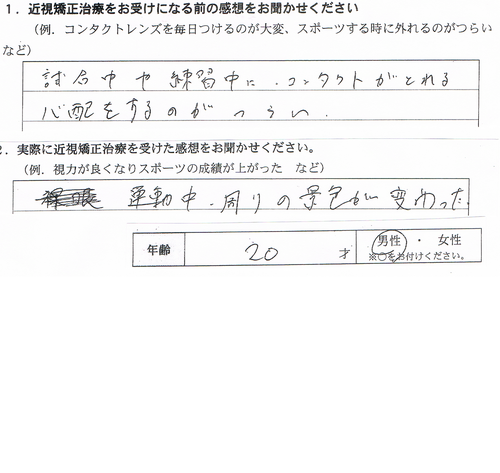 1．近視矯正治療をお受けになる前の感想をお聞かせください
（例．コンタクトレンズを毎日つけるのが大変、スポーツする時に外れるのがつらい
など）
試合中や練習中に、コンタクトがとれる
心配をするのがつらい.
2．実際に近視矯正治療を受けた感想をお聞かせください。
（例．視力が良くなりスポーツの成績が上がった　など）
運動中、周りの景色が変わった.
年齢 20 才 男性 ・ 女性
※○をお付けください。